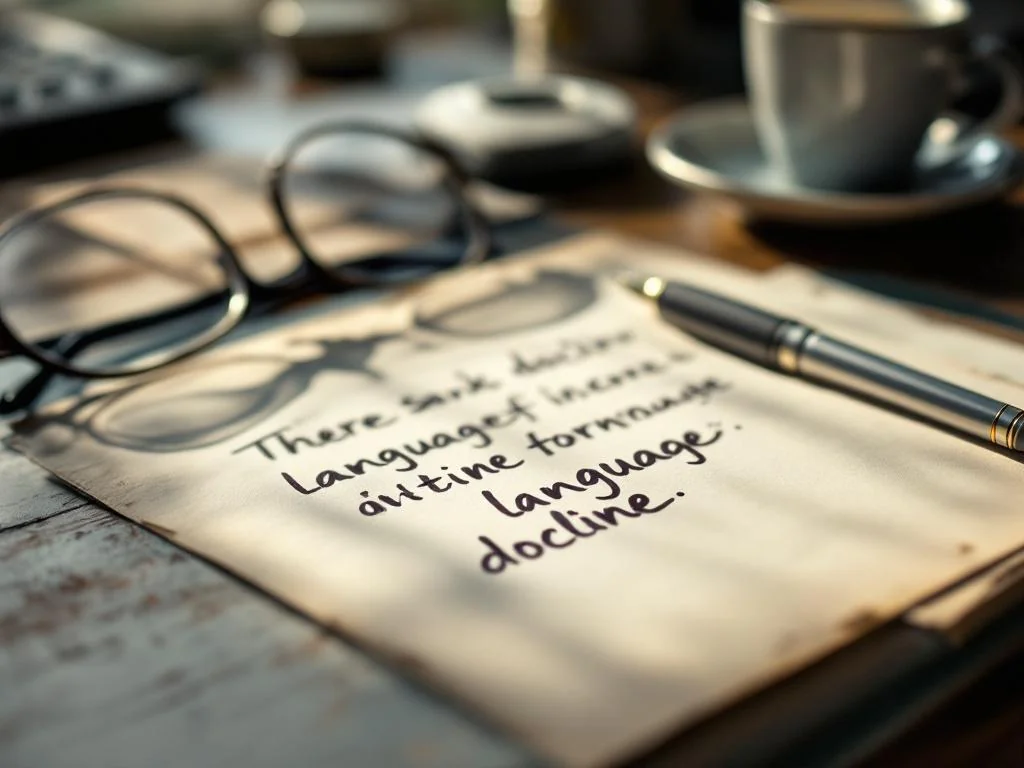 There Sark doclinu
Languagef incore
aivtine tornmuage
language.
docline.